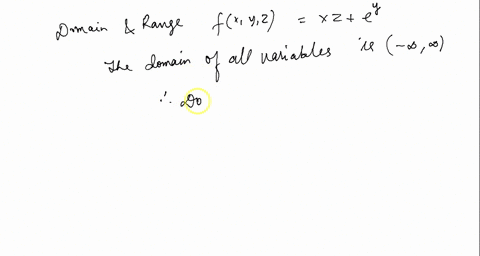 Domain & Range f(x, y, z) = xz + e^y
The domain of all variables is (-∞, ∞)
∴ Do